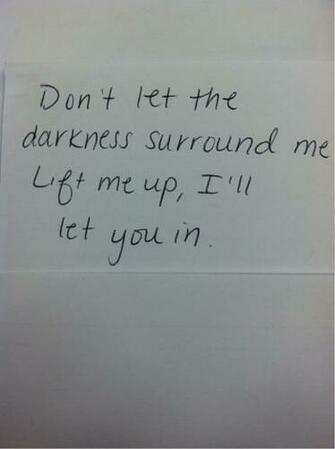 Don't let the
darkness surround me
Lift me up, I'll
let you in.